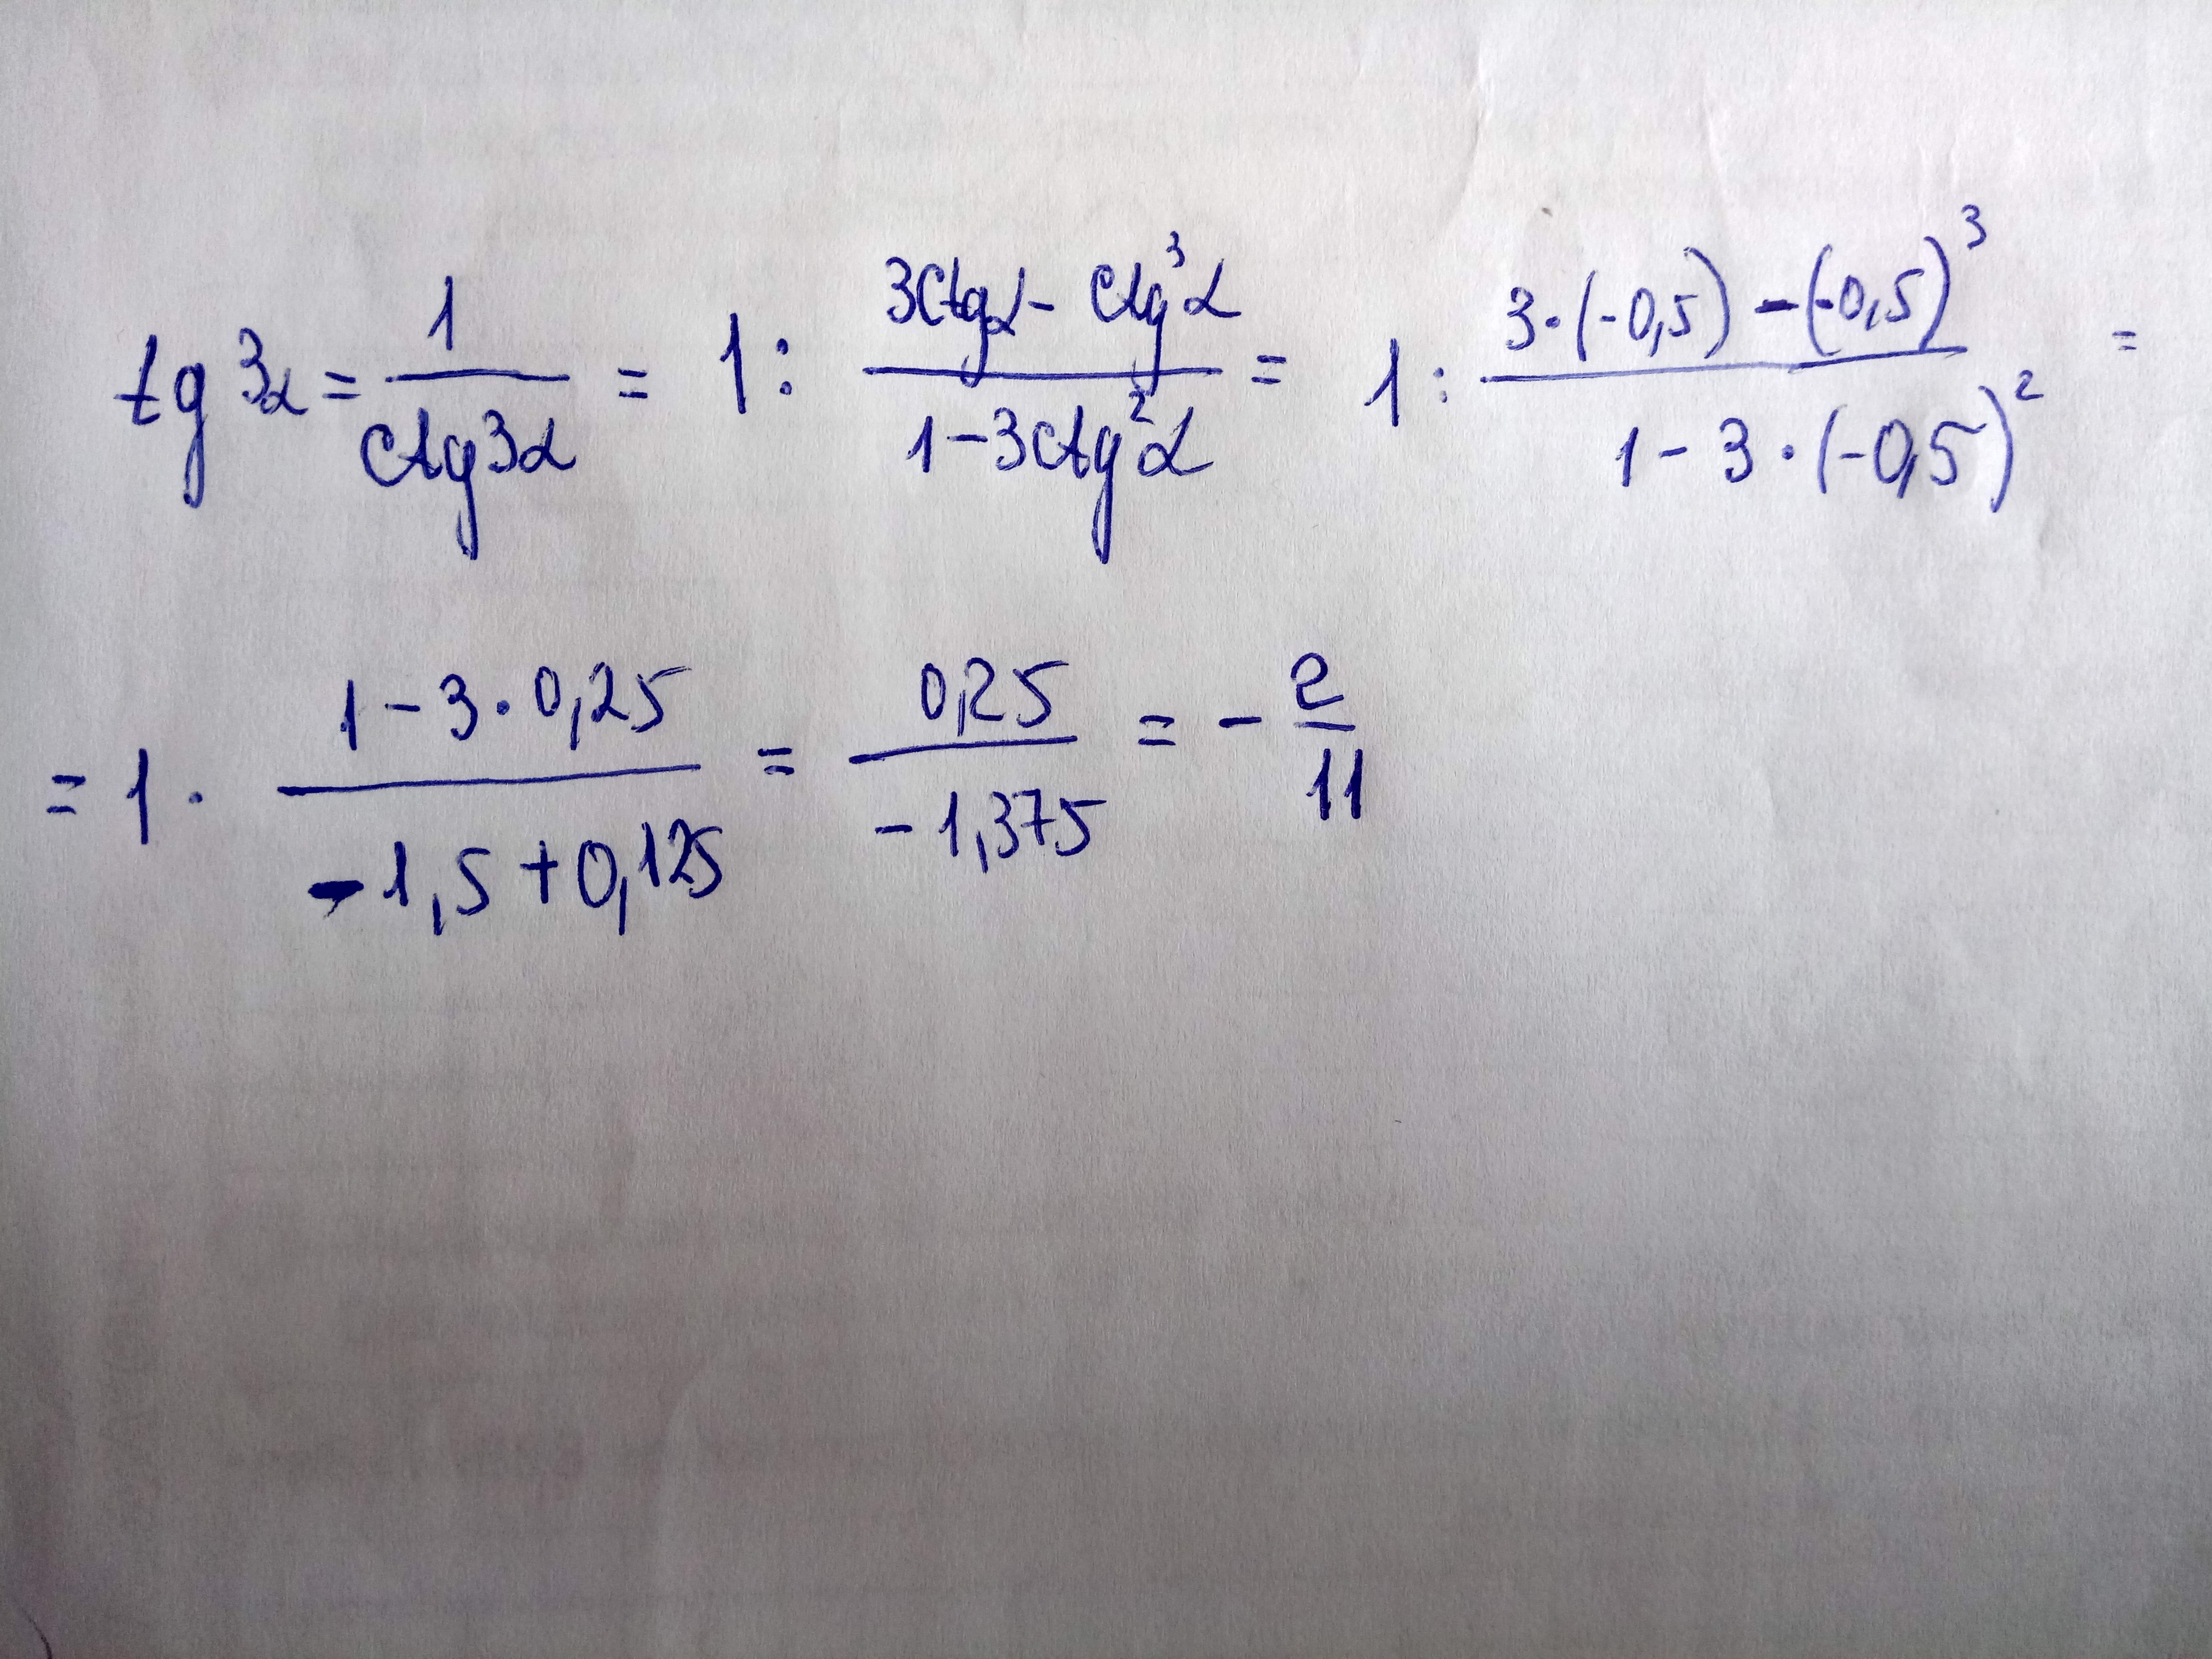 tg 3α = 1/ctg3α = 1 : (3ctgα - ctg³α)/(1 - 3ctg²α) = 1 : (3·(-0,5) - (-0,5)³)/(1 - 3·(-0,5)²) =
= 1 · (1 - 3·0,25)/(-1,5 + 0,125) = 0,25/(-1,375) = - 2/11